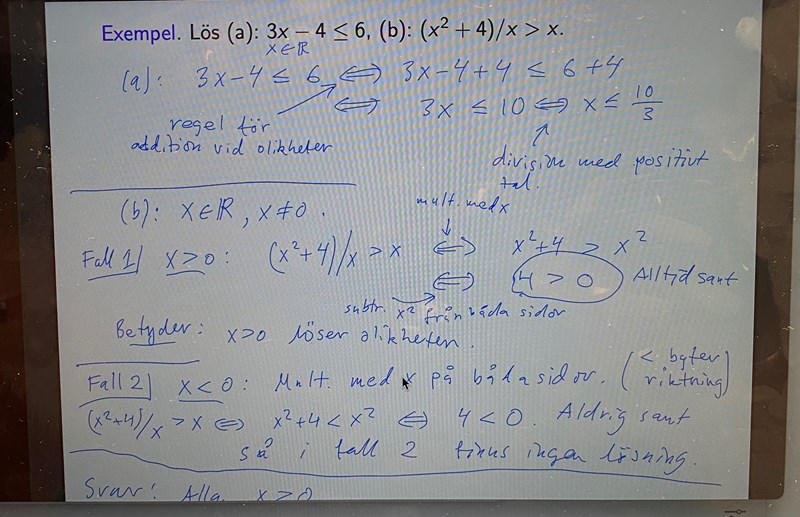 Exempel. Lös (a): 3x − 4 ≤ 6, (b): (x² + 4)/x > x.
x∈ℝ
(a): 3x-4 ≤ 6 ⟺ 3x-4+4 ≤ 6+4
⟺ 3x ≤ 10 ⟺ x ≤ 10/3
regel för
addition vid olikheter
division med positivt
tal.
(b): x∈ℝ, x≠0.
mult. med x
Fall 1) x>0: (x²+4)/x > x ⟺ x²+4 > x²
⟺ 4 > 0 Alltid sant
subtr. x² från båda sidor
Betyder: x>0 löser olikheten.
Fall 2) x<0: Mult. med x på båda sidor. (< byter riktning)
(x²+4)/x > x ⟺ x²+4 < x² ⟺ 4 < 0. Aldrig sant
så i fall 2 finns ingen lösning.
Svar: Alla x > 0